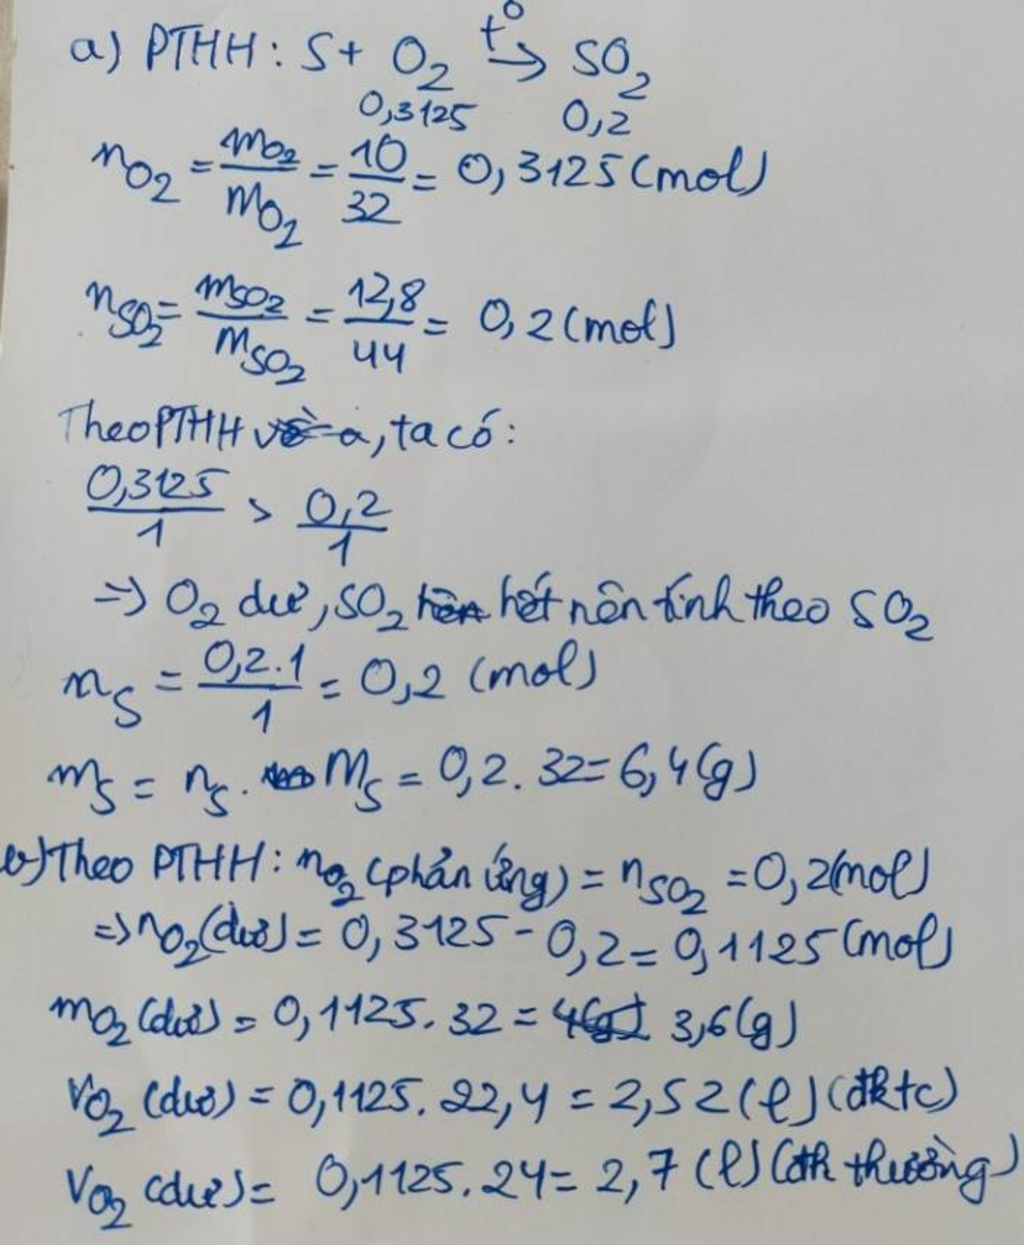 a) PTHH: S + O₂ t° → SO₂
0,3125 0,2
nO₂ = mO₂/MO₂ = 10/32 = 0,3125 (mol)
nSO₂ = mSO₂/MSO₂ = 12,8/44 = 0,2 (mol)
Theo PTHH a, ta có:
0,3125/1 > 0,2/1
=> O₂ dư, SO₂ hết nên tính theo SO₂
nS = 0,2.1/1 = 0,2 (mol)
mS = nS . MS = 0,2 . 32 = 6,4 (g)
b) Theo PTHH: nO₂ (phản ứng) = nSO₂ = 0,2 (mol)
=> nO₂ (dư) = 0,3125 - 0,2 = 0,1125 (mol)
mO₂ (dư) = 0,1125 . 32 = 3,6 (g)
VO₂ (dư) = 0,1125 . 22,4 = 2,52 (l) (đktc)
VO₂ (dư) = 0,1125 . 24 = 2,7 (l) (đk thường)